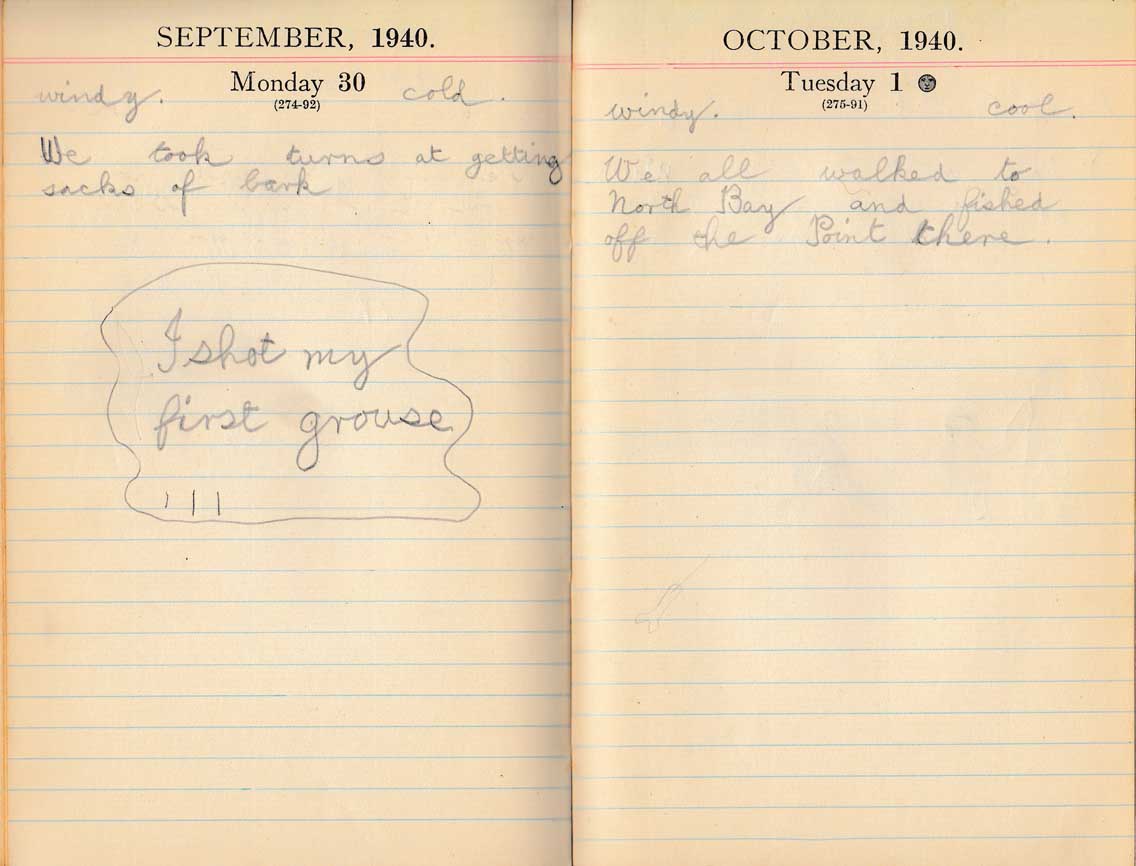 SEPTEMBER, 1940.
Monday 30
(274-92)
windy. cold.
We took turns at getting
sacks of bark
I shot my
first grouse
OCTOBER, 1940.
Tuesday 1
(275-91)
windy. cool.
We all walked to
North Bay and fished
off the Point there.